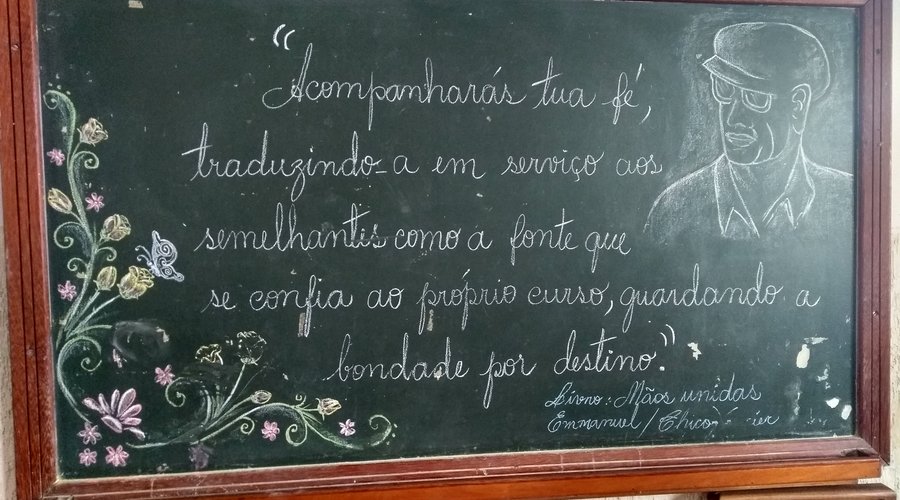 "Acompanharás tua fé,
traduzindo-a em serviço aos
semelhantes como a fonte que
se confia ao próprio curso, guardando a
bondade por destino."
Livro: Mãos unidas
Emmanuel / Chico